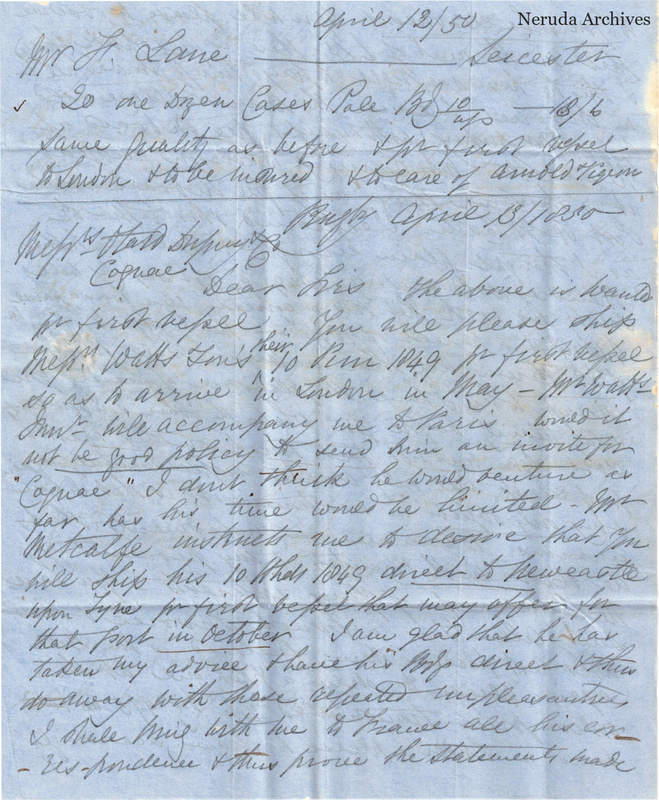 Neruda Archives
April 12/50
Mr F. Lane ——— Leicester
20 one Dozen Cases Pale — 18/6
same quality as before & pr first vessel
to London & to be insured & to care of Arnold
April 13/1850
Messrs Otard Dupuy & Co
Cognac
Dear Sirs the above is wanted
pr first vessel. You will please ship
Messrs Watts Sons their 10 Pun 1849 pr first vessel
so as to arrive in London in May – Mr Watts
Junr will accompany me to Paris would it
not be good policy to send him an invite for
"Cognac" I dont think he would venture as
far has his time would be limited – Mr
Metcalfe instructs me to desire that You
will ship his 10 Hhds 1849 direct to Newcastle
upon Tyne pr first vessel that may offer for
that port in October I am glad that he has
taken my advice & have his direct & thus
do away with those repeated unpleasantries
I shall bring with me to France all his cor
– respondence & thus prove the statements made